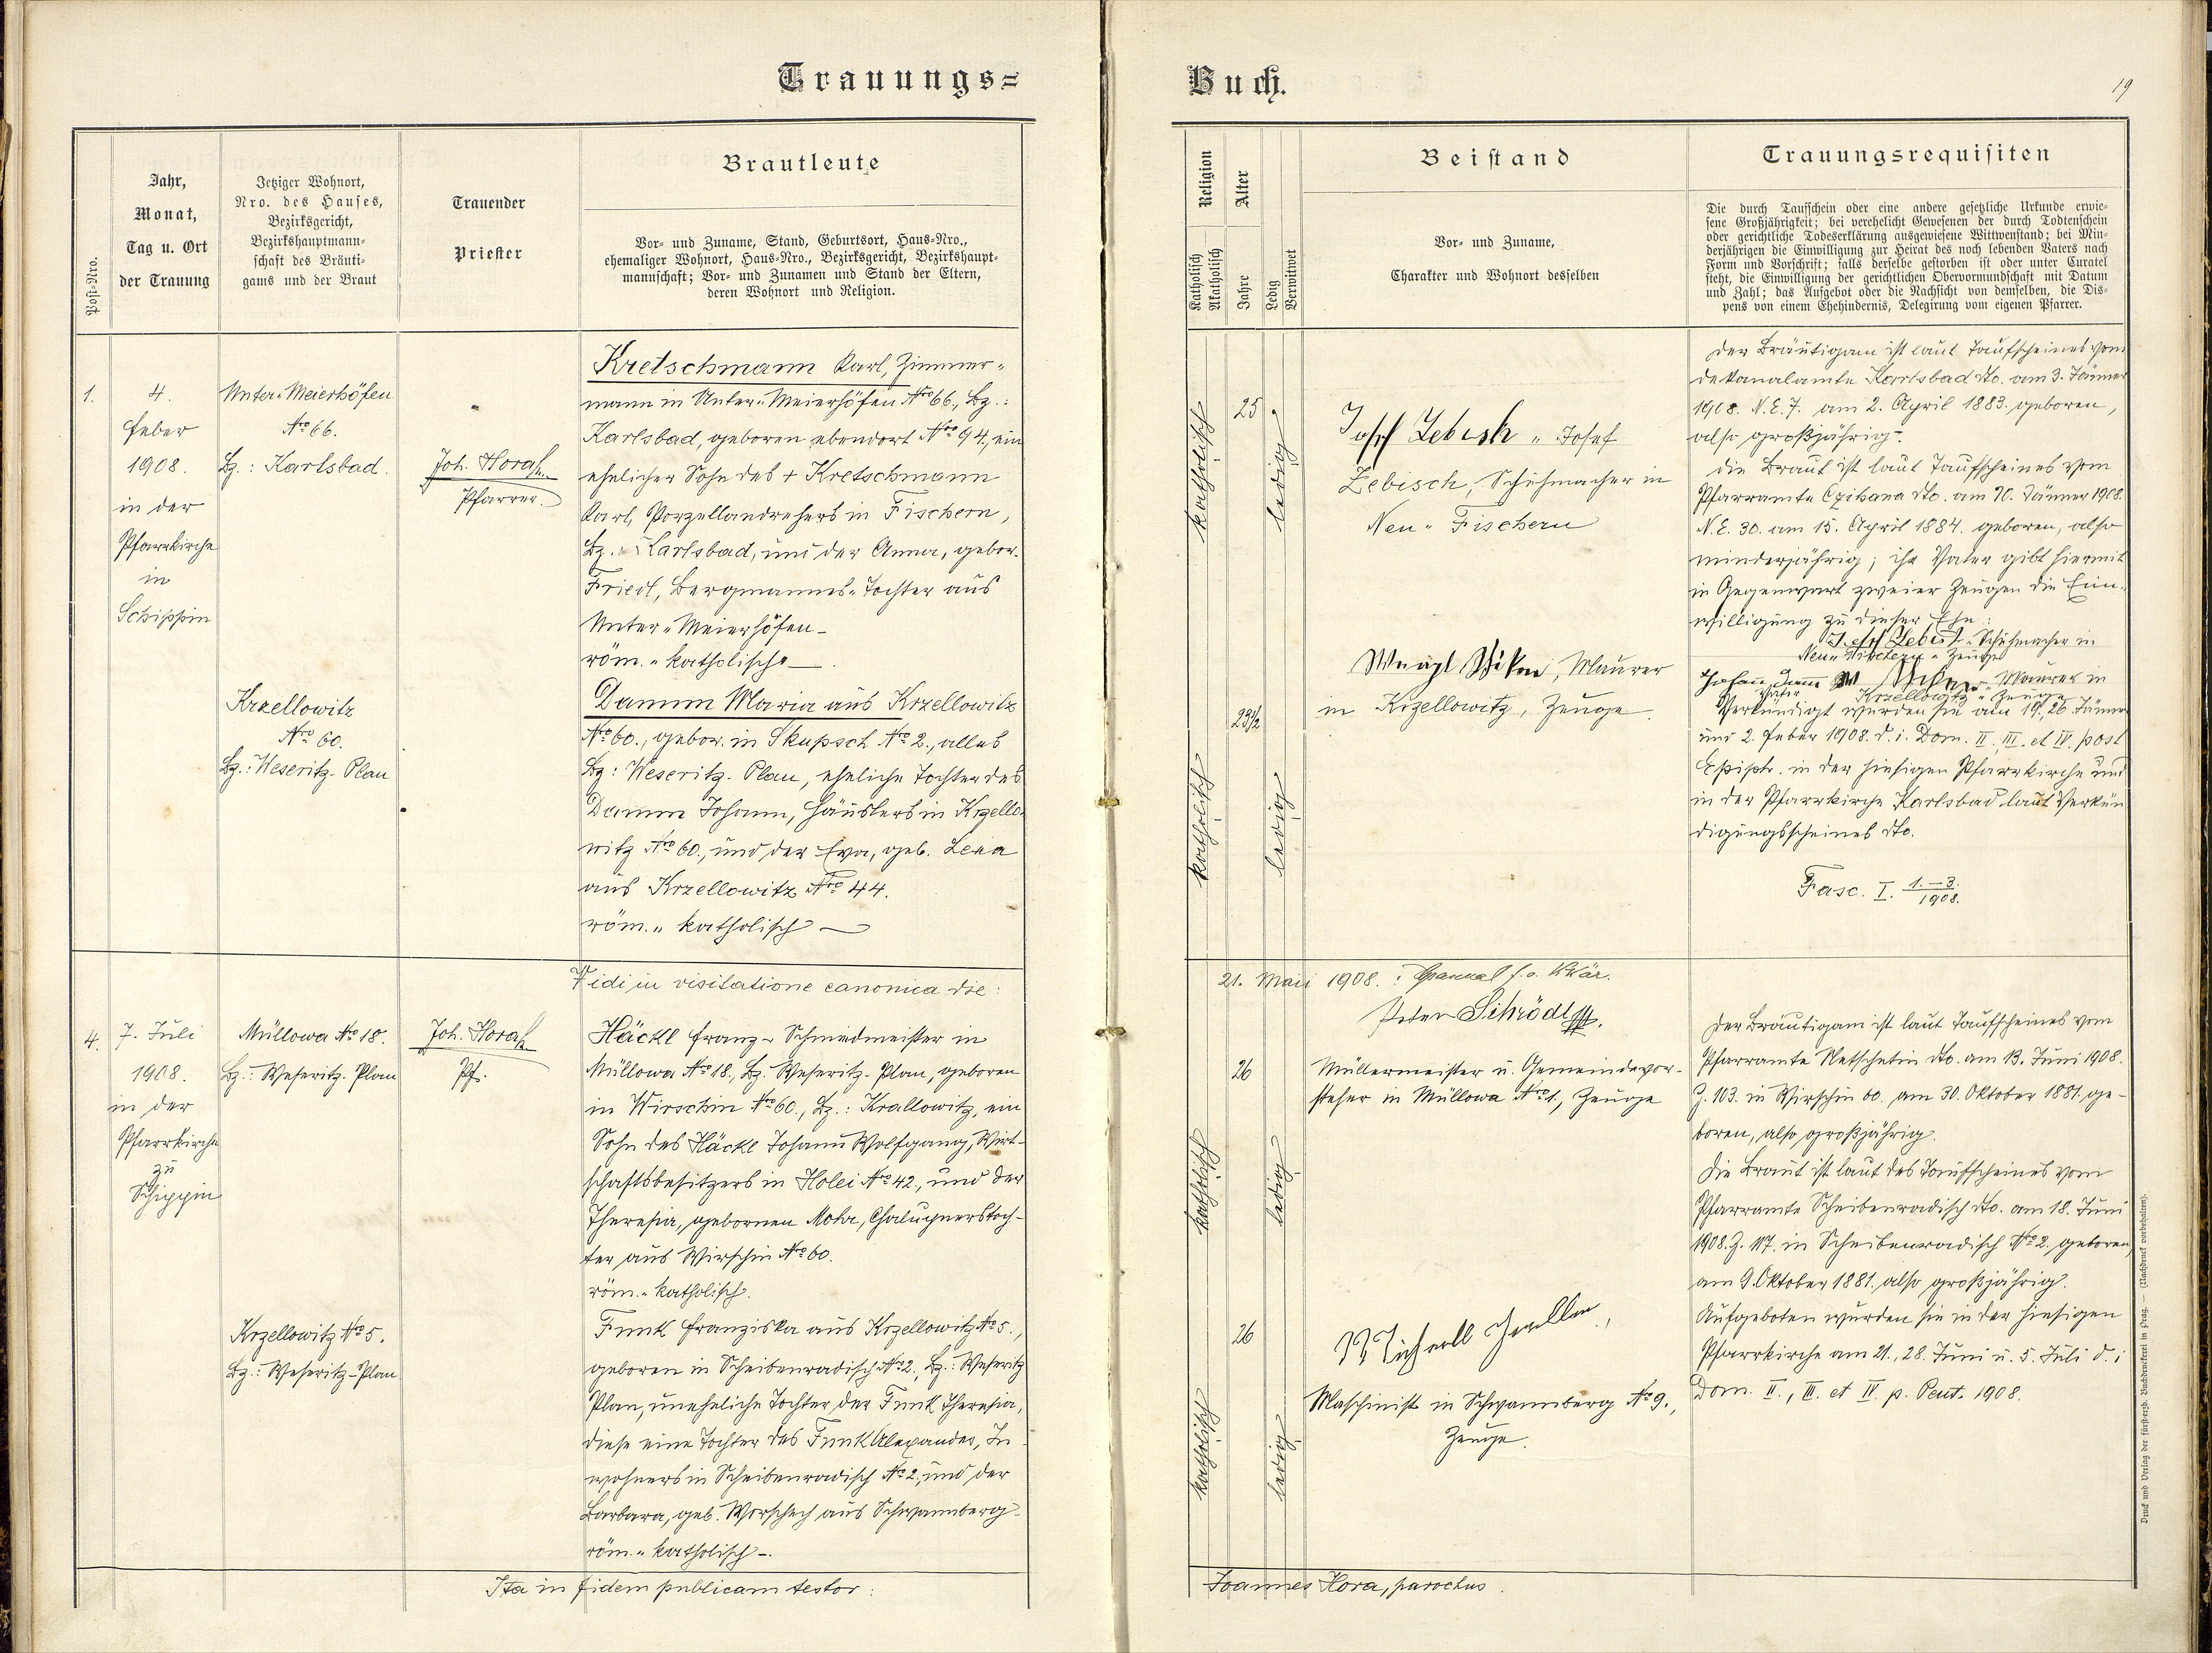 Trauungs=
Buch.
19
Post-Nro.
Jahr,
Monat,
Tag u. Ort
der Trauung
Jetziger Wohnort,
Nro. des Hauses,
Bezirksgericht,
Bezirkshauptmann-
schaft des Bräuti-
gams und der Braut
Trauender
Priester
Brautleute
Vor- und Zuname, Stand, Geburtsort, Haus-Nro.,
ehemaliger Wohnort, Haus-Nro., Bezirksgericht, Bezirkshaupt-
mannschaft; Vor- und Zunamen und Stand der Eltern,
deren Wohnort und Religion.
Religion
Katholisch
Akatholisch
Alter
Jahre
Ledig
Verwitwet
Beistand
Vor- und Zuname,
Charakter und Wohnort desselben
Trauungsrequisiten
Die durch Taufschein oder eine andere gesetzliche Urkunde erwie-
sene Großjährigkeit; bei verehelicht Gewesenen der durch Todtenschein
oder gerichtliche Todeserklärung ausgewiesene Wittwenstand; bei Min-
derjährigen die Einwilligung zur Heirat des noch lebenden Vaters nach
Form und Vorschrift; falls derselbe gestorben ist oder unter Curatel
steht, die Einwilligung der gerichtlichen Obervormundschaft mit Datum
und Zahl; das Aufgebot oder die Nachsicht von demselben, die Dis-
pens von einem Ehehindernis, Delegirung vom eigenen Pfarrer.
1.
4.
Feber
1908.
in der
Pfarrkirche
in
Schippin
Unter-Meierhöfen
Nro 66.
Bz.: Karlsbad.
Krzellowitz
Nro 60.
Bz.: Weseritz-Plan
Joh. Hora
Pfarrer.
Kretschmann Karl, Zimmer-
mann in Unter-Meierhöfen Nro 66., Bz.:
Karlsbad, geboren ebendort Nro 94., ein
ehelicher Sohn des + Kretschmann
Karl, Porzellandrehers in Fischern,
Bz.: Karlsbad, und der Anna, gebor.
Friedl, Bergmannes-Tochter aus
Unter-Meierhöfen-
röm.-katholisch
Damm Maria aus Krzellowitz
Nro 60., gebor. in Skupsch Nro 2., alles
Bz: Weseritz-Plan, eheliche Tochter des
Damm Johann, Häuslers in Krzello-
witz Nro 60., und der Eva, geb. Lexa
aus Krzellowitz Nro 44.
röm.-katholisch
katholisch
25
ledig
katholisch
23 1/2
ledig
Josef Zebisch - Josef
Zebisch, Schuhmacher in
Neu-Fischern
Maurer
in Krzellowitz, Zeuge.
Der Bräutigam ist laut Taufscheines vom
Dekanalamte Karlsbad dto. am 3. Jänner
1908. N.E. 7. am 2. April 1883. geboren,
also großjährig.
Die Braut ist laut Taufscheines vom
Pfarramte Czihana dto. am 10. Jänner 1908.
N.E. 30. am 15. April 1884. geboren, also
minderjährig; ihr Vater gibt hiermit
in Gegenwart zweier Zeugen die Ein-
willigung zu dieser Ehe:
Josef Zebisch - Schuhmacher in
Neu-Fischern - Zeuge
Johan Dam Maurer in
Vater Krzellowitz - Zeuge
Verkündigt wurden sie am 19., 26. Jänner
und 2. Feber 1908. d. i. Dom. II., III. et IV. post
Epiph. in der hiesigen Pfarrkirche und
in der Pfarrkirche Karlsbad laut Verkün-
digungsscheines dto.
Fasc. I. 1.-3./1908.
Vidi in visitatione canonica die:
21. Maii 1908.:
4.
7. Juli
1908.
in der
Pfarrkirche
zu
Schippin
Müllowa Nro 18.
Bz.: Weseritz-Plan
Krzellowitz Nro 5.
Bz.: Weseritz-Plan
Joh. Hora
Pf.
Häckl Franz - Schmiedmeister in
Müllowa Nro 18., Bz. Weseritz-Plan, geboren
in Wirschin Nro 60., Bz.: Krallowitz, ein
Sohn des Häckl Johann Wolfgang, Wirt-
schaftsbesitzers in Holei Nro 42., und der
Theresia, gebornen Mohr, Chaluppnerstoch-
ter aus Wirschin Nro 60.
röm.-katholisch.
Funk Franziska aus Krzellowitz Nro 5.,
geboren in Scheibenradisch Nro 2., Bz.: Weseritz
Plan, uneheliche Tochter der Funk Theresia,
diese eine Tochter des Funk Alexander, In-
wohners in Scheibenradisch Nro 2., und der
Barbara, geb. Worschech aus Schwannberg-
röm.-katholisch-.
katholisch
26
ledig
katholisch
26
ledig
Peter Schrödl
Müllermeister u. Gemeindevor-
steher in Müllowa Nro 1., Zeuge
Michael
Maschinist in Schwannberg Nro 9.,
Zeuge.
Der Bräutigam ist laut Taufscheines vom
Pfarramte Netschetin dto. am 13. Juni 1908.
Z. 103. in Wirschin 60. am 30. Oktober 1881. ge-
boren, also großjährig.
Die Braut ist laut des Taufscheines vom
Pfarramte Scheibenradisch dto. am 18. Juni
1908. Z. 117. in Scheibenradisch Nro 2. geboren
am 9. Oktober 1881. also großjährig.
Aufgeboten wurden sie in der hiesigen
Pfarrkirche am 21., 28. Juni u. 5. Juli d. i
Dom. II., III. et IV. p. Pent. 1908.
Ita in fidem publicam testor:
Joannes Hora, parochus.
Druck und Verlag der fürst-erzb. Buchdruckerei in Prag. — (Nachdruck vorbehalten).